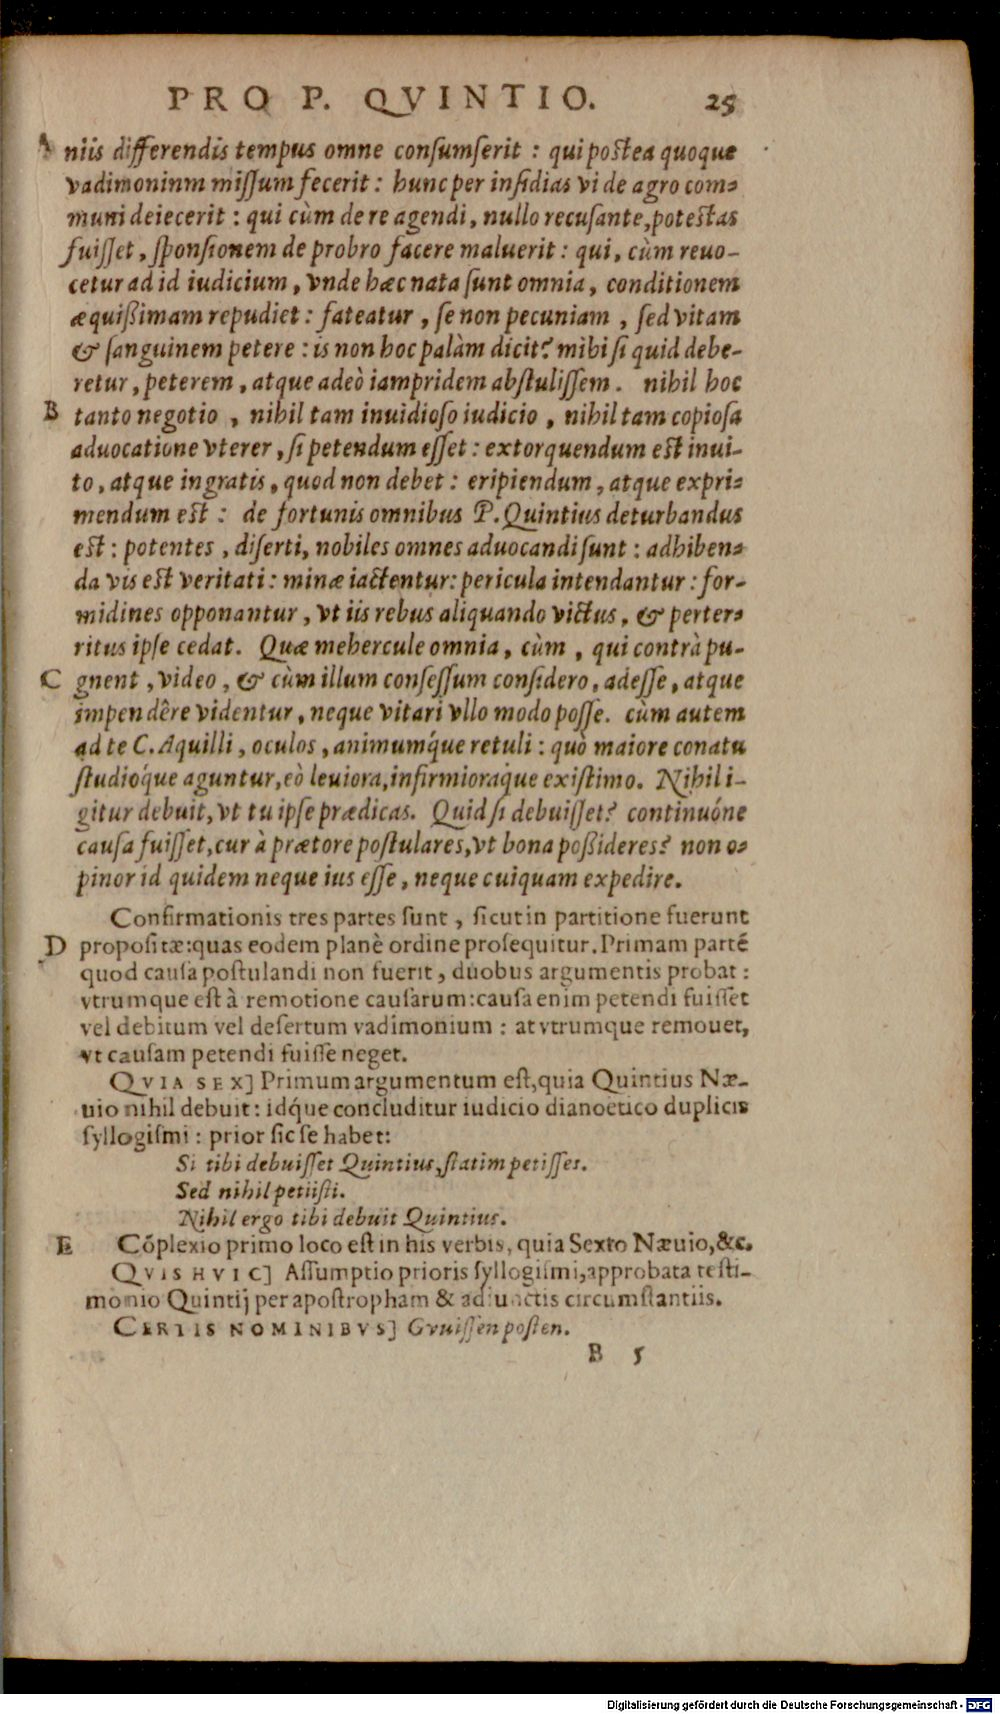 PRO P. QVINTIO. 25
A niis differendis tempus omne consumserit : qui postea quoque
vadimoninm missum fecerit : hunc per insidias vi de agro com-
muni deiecerit : qui cùm de re agendi, nullo recusante, potestas
fuisset, sponsionem de probro facere maluerit : qui, cùm reuo-
cetur ad id iudicium, vnde hæc nata sunt omnia, conditionem
æquißimam repudiet : fateatur, se non pecuniam, sed vitam
& sanguinem petere : is non hoc palàm dicit? mihi si quid debe-
retur, peterem, atque adeò iampridem abstulissem. nihil hoc
B tanto negotio, nihil tam inuidioso iudicio, nihil tam copiosa
aduocatione vterer, si petendum esset : extorquendum est inui-
to, atque ingratis, quod non debet : eripiendum, atque expri-
mendum est : de fortunis omnibus P. Quintius deturbandus
est : potentes, diserti, nobiles omnes aduocandi sunt : adhiben-
da vis est veritati : minæ iactentur: pericula intendantur : for-
midines opponantur, vt iis rebus aliquando victus, & perter-
ritus ipse cedat. Quæ mehercule omnia, cùm, qui contrà pu-
C gnent, video, & cùm illum consessum considero, adesse, atque
impendêre videntur, neque vitari vllo modo posse. cùm autem
ad te C. Aquilli, oculos, animumq́ue retuli : quò maiore conatu
studioq́ue aguntur, eò leuiora, infirmioraq́ue existimo. Nihil i-
gitur debuit, vt tu ipse prædicas. Quid si debuisset? continuóne
causa fuisset, cur à prætore postulares, vt bona poßideres? non o-
pinor id quidem neque ius esse, neque cuiquam expedire.
Confirmationis tres partes sunt, sicut in partitione fuerunt
D propositæ: quas eodem planè ordine prosequitur. Primam partē
quod causa postulandi non fuerit, duobus argumentis probat :
vtrumque est à remotione causarum: causa enim petendi fuisset
vel debitum vel desertum vadimonium : at vtrumque remouet,
vt causam petendi fuisse neget.
QVIA SEX] Primum argumentum est, quia Quintius Næ-
uio nihil debuit : idq́ue concluditur iudicio dianoetico duplicis
syllogismi : prior sic se habet:
Si tibi debuisset Quintius, statim petisses.
Sed nihil petiisti.
Nihil ergo tibi debuit Quintius.
E Cōplexio primo loco est in his verbis, quia Sexto Næuio, &c.
QVIS HVIC] Assumptio prioris syllogismi, approbata testi-
monio Quintij per apostropham & adiunctis circumstantiis.
CERTIS NOMINIBVS] Gvuissen posten.
B 5
Digitalisierung gefördert durch die Deutsche Forschungsgemeinschaft - DFG